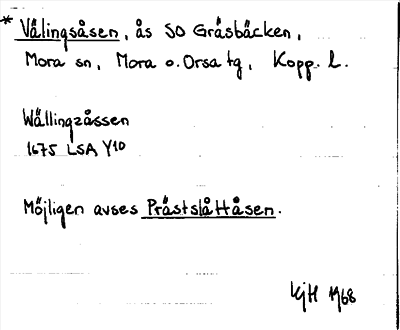 * Vålingsåsen, ås SO Gråsbäcken,
Mora sn, Mora o. Orsa tg, Kopp. l.
Wållingzåssen
1675 LSA Y10
Möjligen avses Prästslåttåsen.
KjH 1968